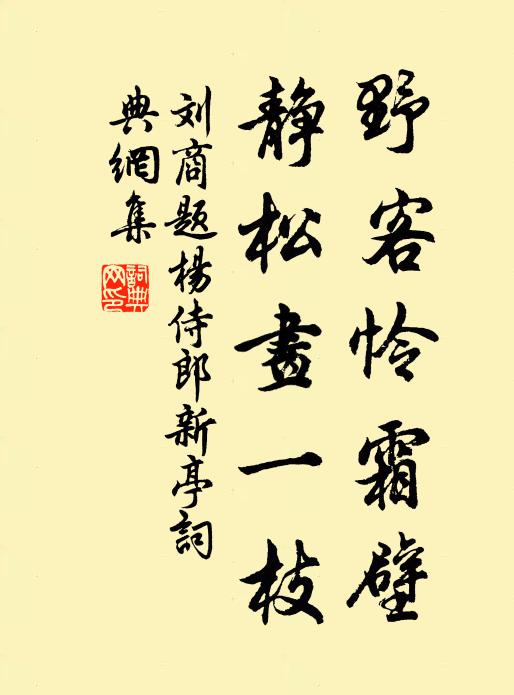 野客怜霜壁
静松畫一枝
刘商题杨侍郎新亭詞
典網集
詞典
网印